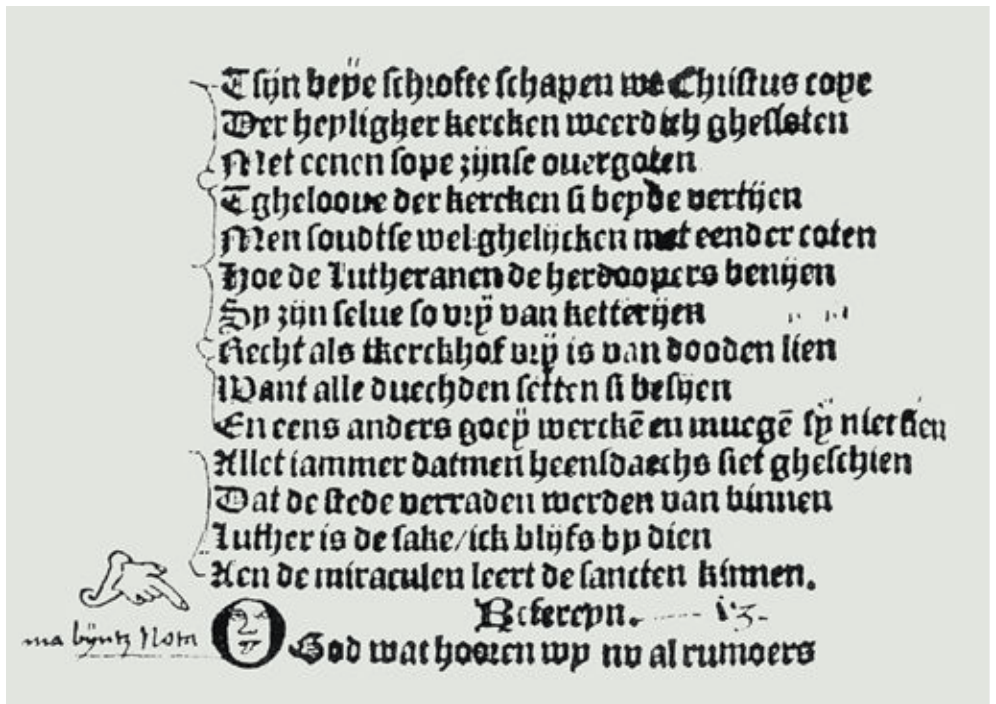 Tsijn beÿde schrofte schapen wt Christus coye
Der heyligher kercken weerdich ghesloten
Met eenen sope zijnse ouergoten
Tgheloove der kercken si beyde vertijen
Men soudtse wel ghelijcken met eender coten
Hoe de Lutheranen de herdoopers benijen
Sy zijn selue so vrÿ van ketterijen
Recht als tkerckhof vrÿ is van dooden lien
Want alle duechden setten si besijen
En eens anders goeÿ werckē en muegē sÿ niet sien
Allet iammer datmen heensdaechs siet gheschien
Dat de stede verraden werden van binnen
Luther is de sake/ick blijfs by dien
Aen de miraculen leert de sancten kinnen.
Refereyn. 13.
ma bÿntz Nota
O God wat hooren wy nv al rumoers